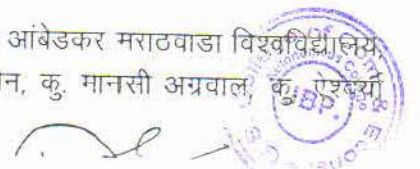 आंबेडकर मराठवाडा विश्वविद्यालय,
न, कु. मानसी अग्रवाल, कु. ऐश्वर्या